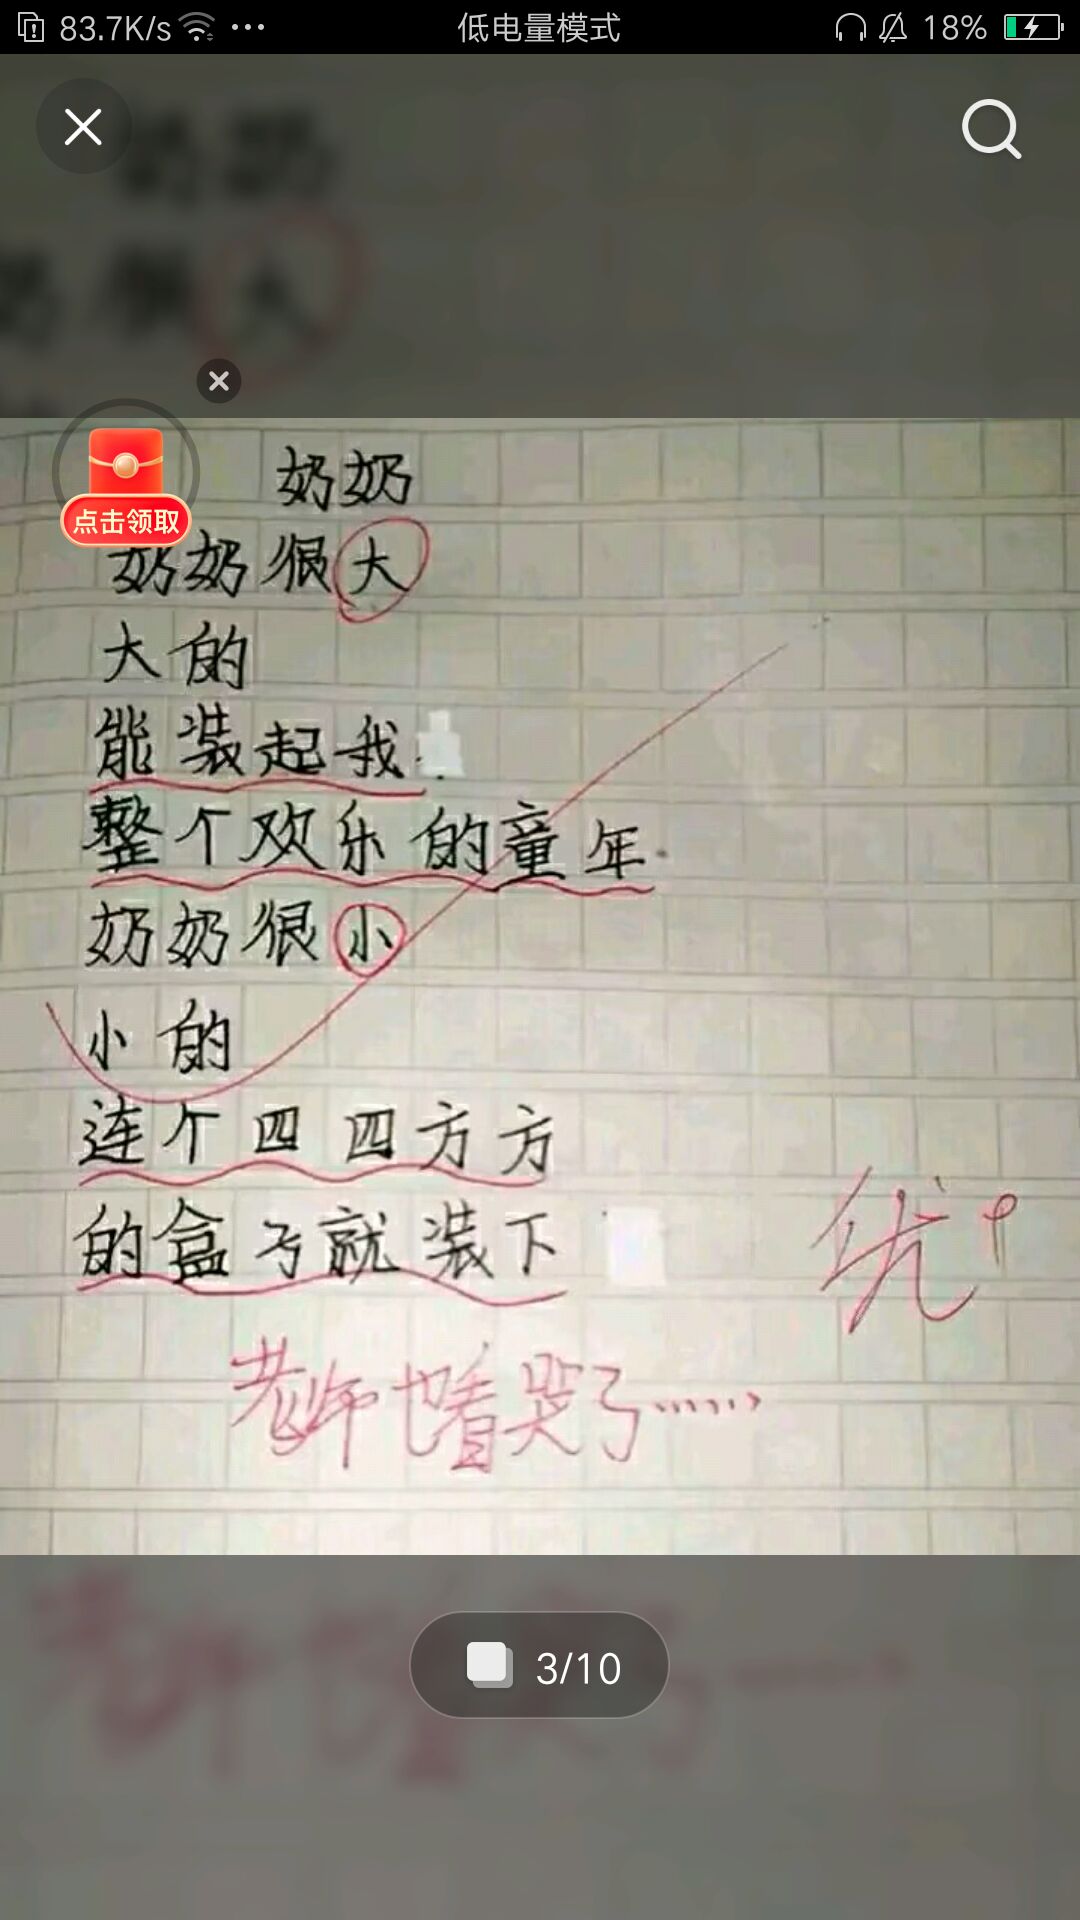 83.7K/s
低电量模式
18%
点击领取
奶奶
奶奶很大
大的
能装起我
整个欢乐的童年
奶奶很小
小的
连个四四方方
的盒子就装下
优
老师也看哭了……
3/10